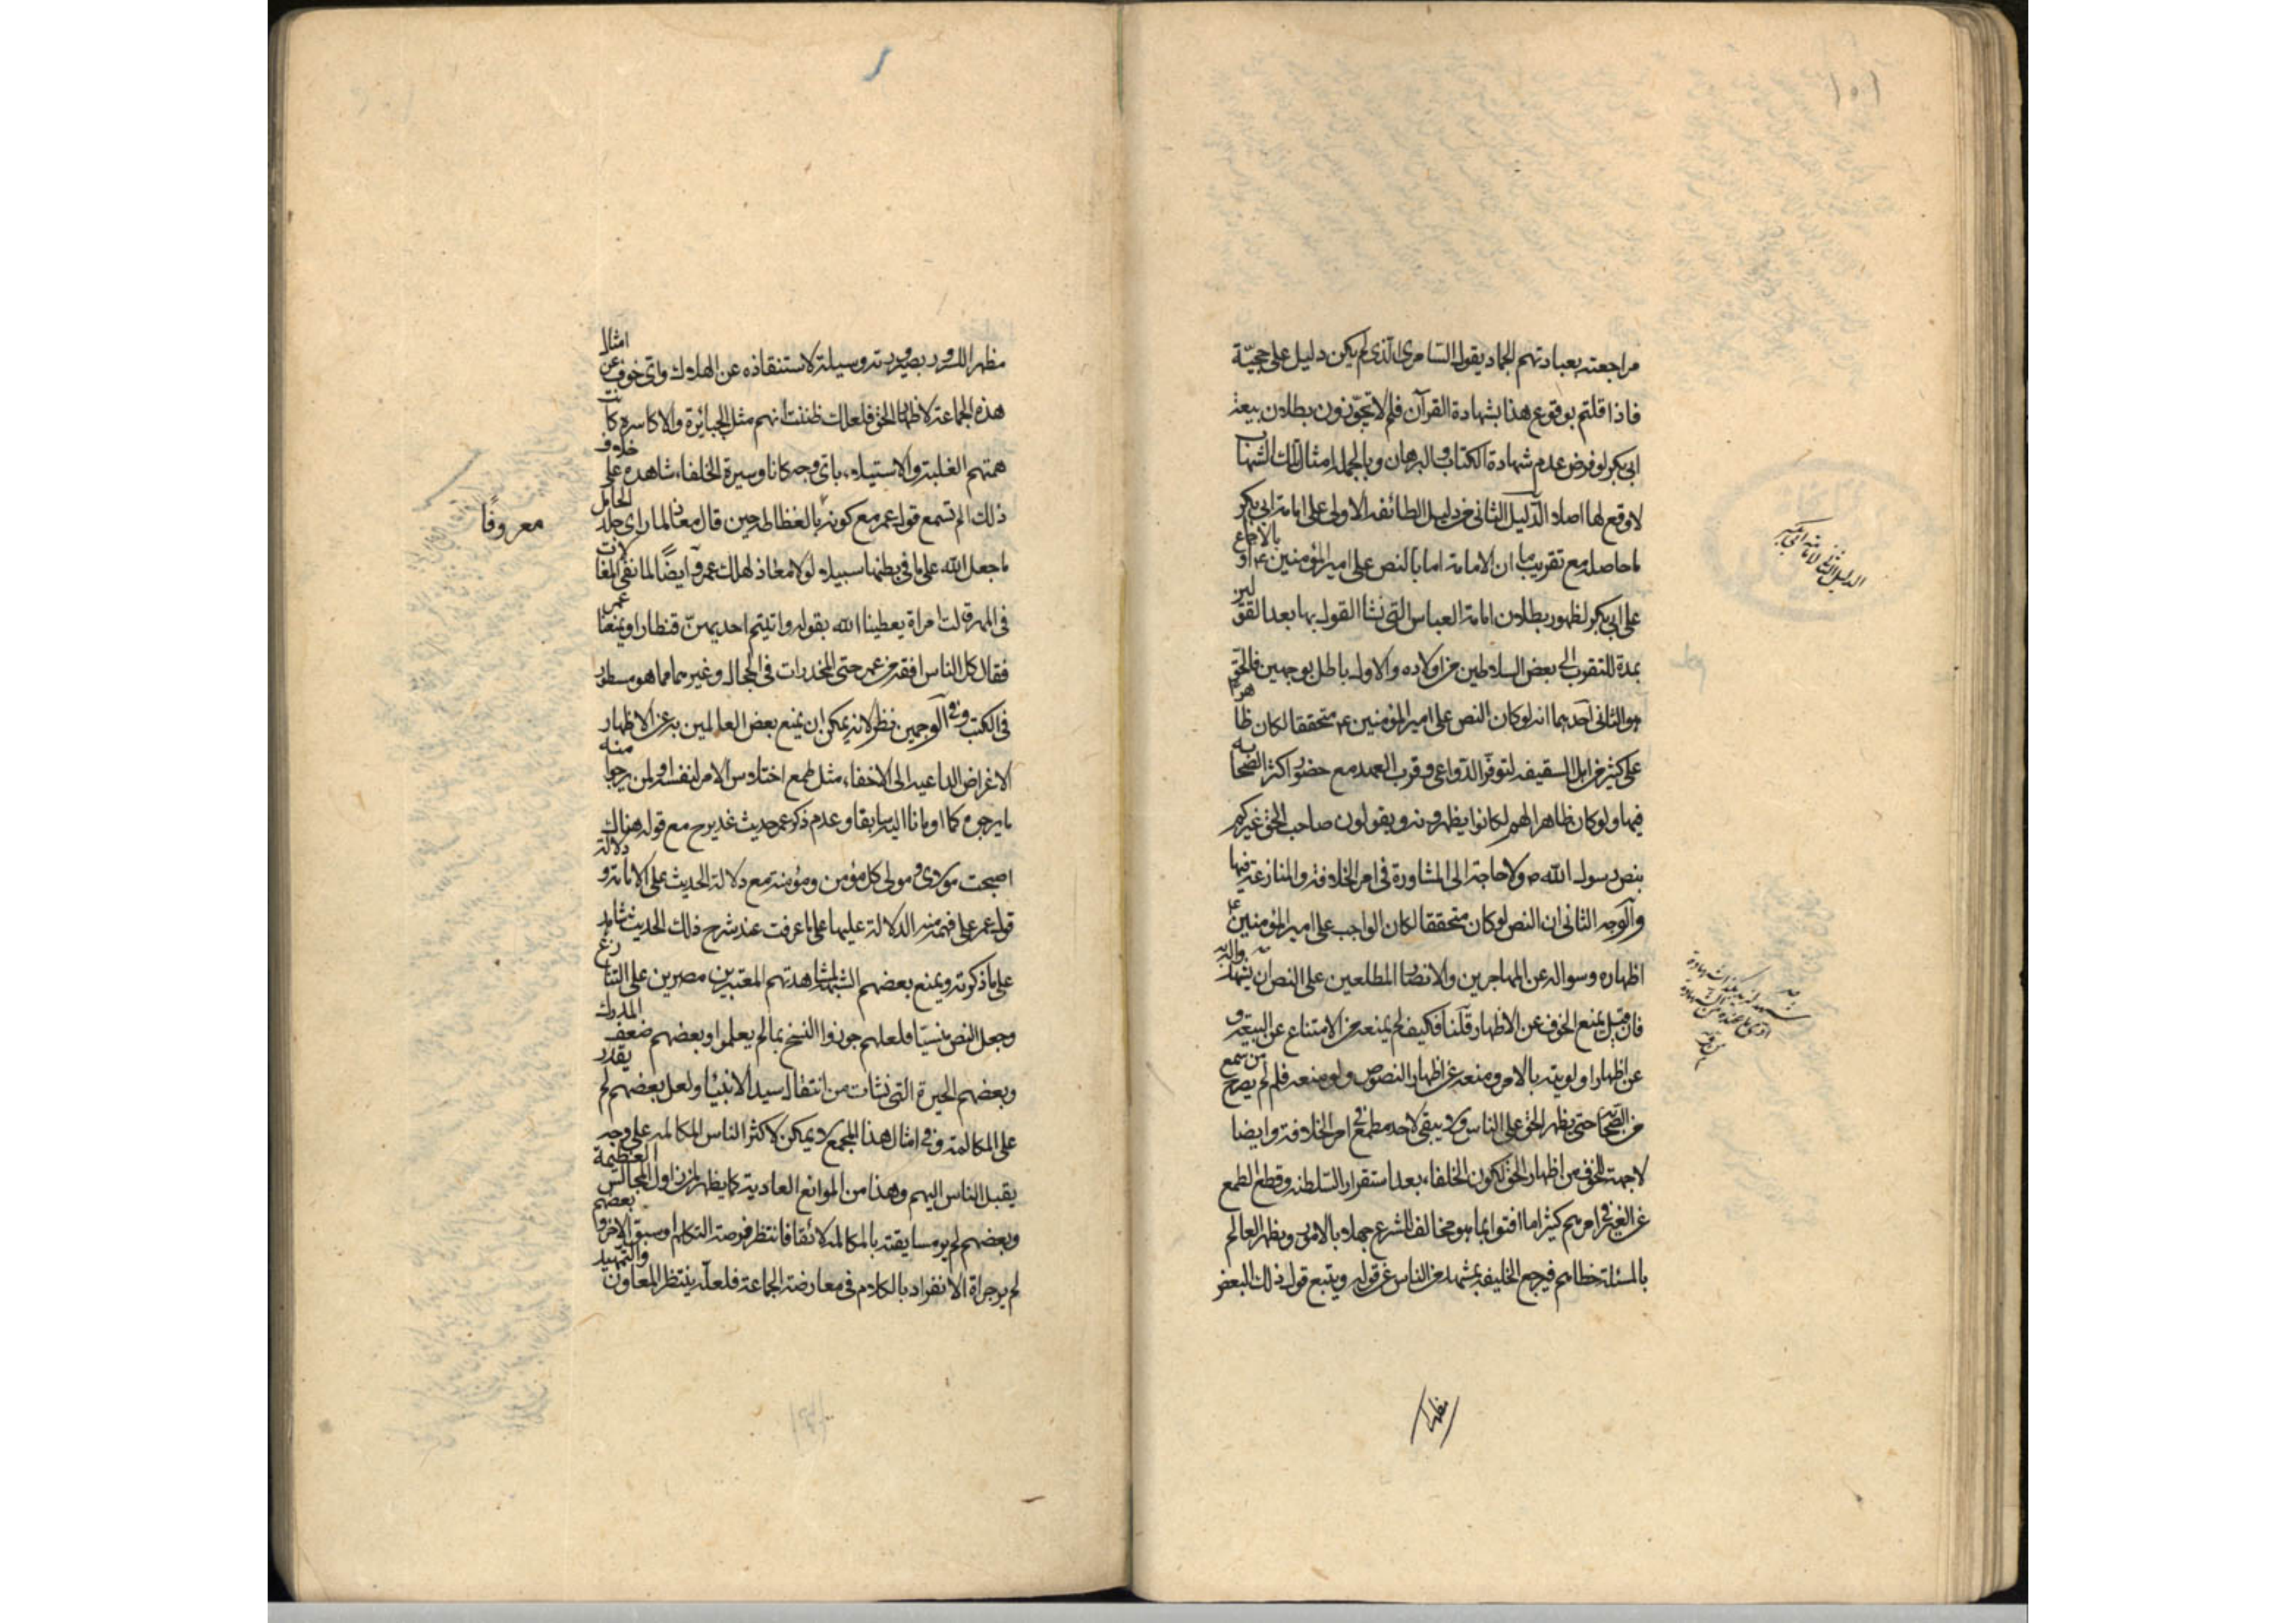 ١٥١
مراجعته بعبادتهم الجماد بقول السامري الذي لم يكن دليل على حجيّة
فاذا قلتم بوقوع هذا بشهادة القرآن فلم لا تجوّزون بطلان بيعة
ابي بكر لو فرض عدم شهادة الكتاب والبرهان وبالجملة امثال تلك الشبهات
لا وقع لها اصلا الدليل الثاني من دليل الطائفة الاولى على امامة ابي بكر
ما حاصله مع تقريب ما ان الامامة اما بالنص على امير المؤمنين ع او بالاجماع
على ابي بكر لظهور بطلان امامة العباس التي نشا القول بها بعد
بمدة للتقرب الى بعض السلاطين من اولاده والاول باطل بوجهين فالحق
هو الثاني احدهما انه لو كان النص على امير المؤمنين ع متحققا لكان ظاهرا
على كثير من اهل السقيفه لتوفر الدواعي وقرب العهد مع حضور اكثر الصحابه
فيها ولو كان ظاهرا لهم لكانوا يظهرونه ويقولون صاحب الحق غيركم
بنص رسول الله ص ولا حاجة الى المشاورة في امر الخلافة والمنازعة فيها
والوجه الثاني ان النص لو كان متحققا لكان الواجب على امير المؤمنين ع
اظهاره وسواله عن المهاجرين والانصار المطلعين على النص ان يشهدوا به
فان قيل يمنع الخوف عن الاظهار قلنا فكيف لم يمنعه من الامتناع عن البيعة و
عن اظهار اولويته بالامر ومنعه عن اظهار النصوص ولو منعه فلم لم يصرح من سمع
من الصحابة حتى يظهر الحق على الناس ولا يبقى لاحد مطمع في امر الخلافة وايضا
لا جهة للخوف من اظهار الحق لكون الخلفاء بعد استقرار السلطنة وقطع الطمع
عن الغير في امرهم كثيرا ما افتوا بما هو مخالف للشرع جهلا بالامر ويظهر العالم
بالمسئلة خطاهم فيرجع الخليفة بمشهد من الناس عن قوله ويتبع قول ذلك البعض
مظهرا
الدليل الثاني لامامة ابي بكر
مظهرا للسرور بصيرورته وسيلة لاستنقاذه عن الهلاك واي خوف عن امثال
هذه الجماعة لاظهار الحق فلعلك ظننت انهم مثل الجبائرة والاكاسرة كانت
همتهم الغلبة والاستيلاء باي وجه كانا وسيرة الخلفاء شاهدة على خلاف
ذلك الم تسمع قول عمر مع كونه بالغظاظة حين قال معاذ لما راى جلد الحامل
معروفًا
ما جعل الله على ما في بطنها سبيلا لو لا معاذ لهلك عمر وايضًا لما نفى المغالات
في المهر قالت امراة يعطينا الله بقوله واتيتم احديهن قنطارا ويمنعنا عمر
فقال كل الناس افقه من عمر حتى المخدرات في الحجال وغير هما مما هو مسطور
في الكتب وفي الوجهين نظر لانه يمكن ان يمنع بعض العالمين به عن الاظهار
الاغراض الداعية الى الاخفاء مثل طمع اختلاس الامر لنفسه او لمن يرجوا منه
ما يرجوه كما اومانا اليه سابقا وعدم ذكر عمر حديث غدير خ مع قوله هناك
اصبحت مولاى ومولى كل مؤمن ومؤمنة مع دلالة الحديث على الامامة و دلالة
قول عمر على فهمه منه الدلالة عليها على ما عرفت عند شرح ذلك الحديث شاهد
على ما ذكرته ويمنع بعضهم الشبه لمشاهدتهم المعتبرين مصرين على التنازع
وجعل النص منسيّا فلعلهم جوزوا النسخ بما لم يعلموا وبعضهم ضعف المدرك
وبعضهم الحيرة التي نشات من انتقال سيد الانبياء ولعل بعضهم لم يقدر
على المكالمة وفي امثال هذا المجمع لا يمكن لاكثر الناس المكالمة على وجه
يقبل الناس اليهم وهذا من الموانع العادية كما يظهر لمن زاول المجالس العظيمة
وبعضهم لم ير مسابقته بالمكالمة لائقا فانتظر فرصة التكلم او سبق الاخر وبعضهم
لم ير جراة الانفراد بالكلام في معارضة الجماعة فلعله ينتظر المعاون والتمهيد